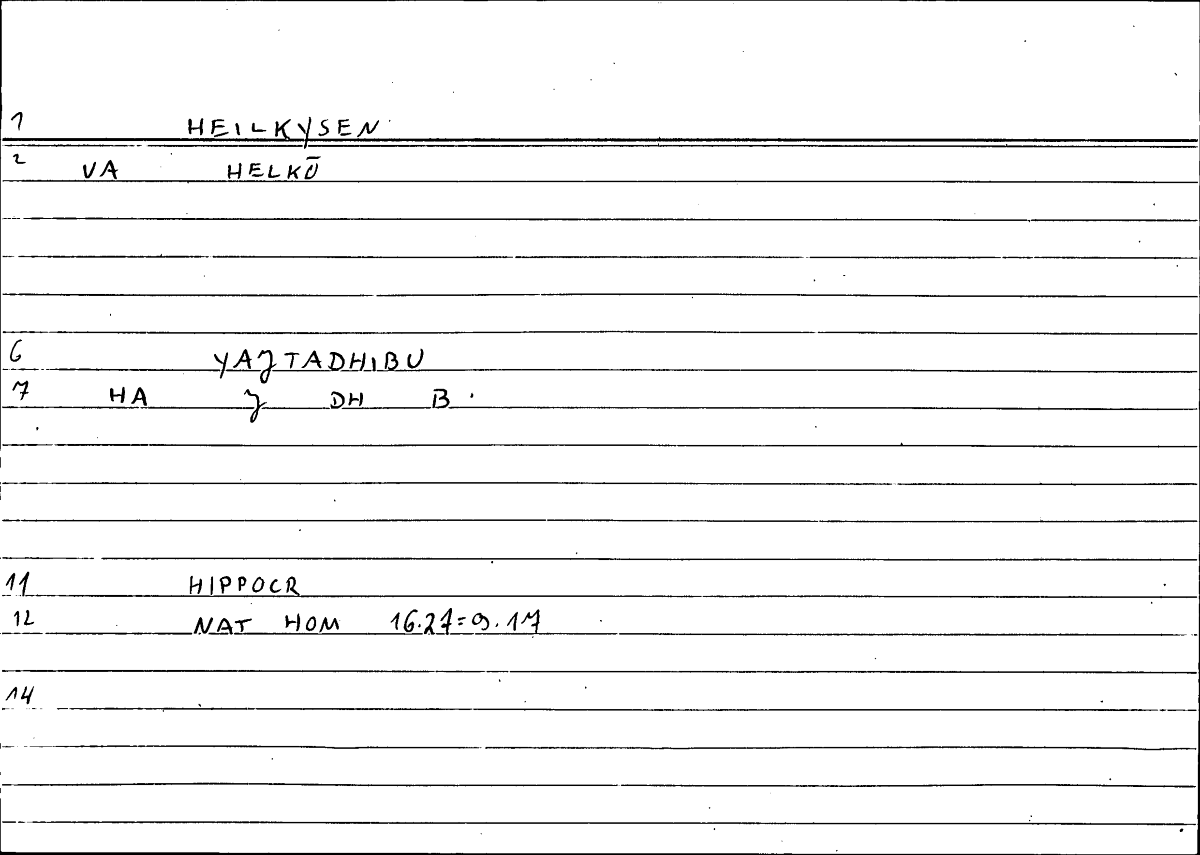 1 HEILKYSEN
2 VA HELKŌ
6 YAJTADHIBU
7 HA J DH B
11 HIPPOCR
12 NAT HOM 16.27=9.17
14